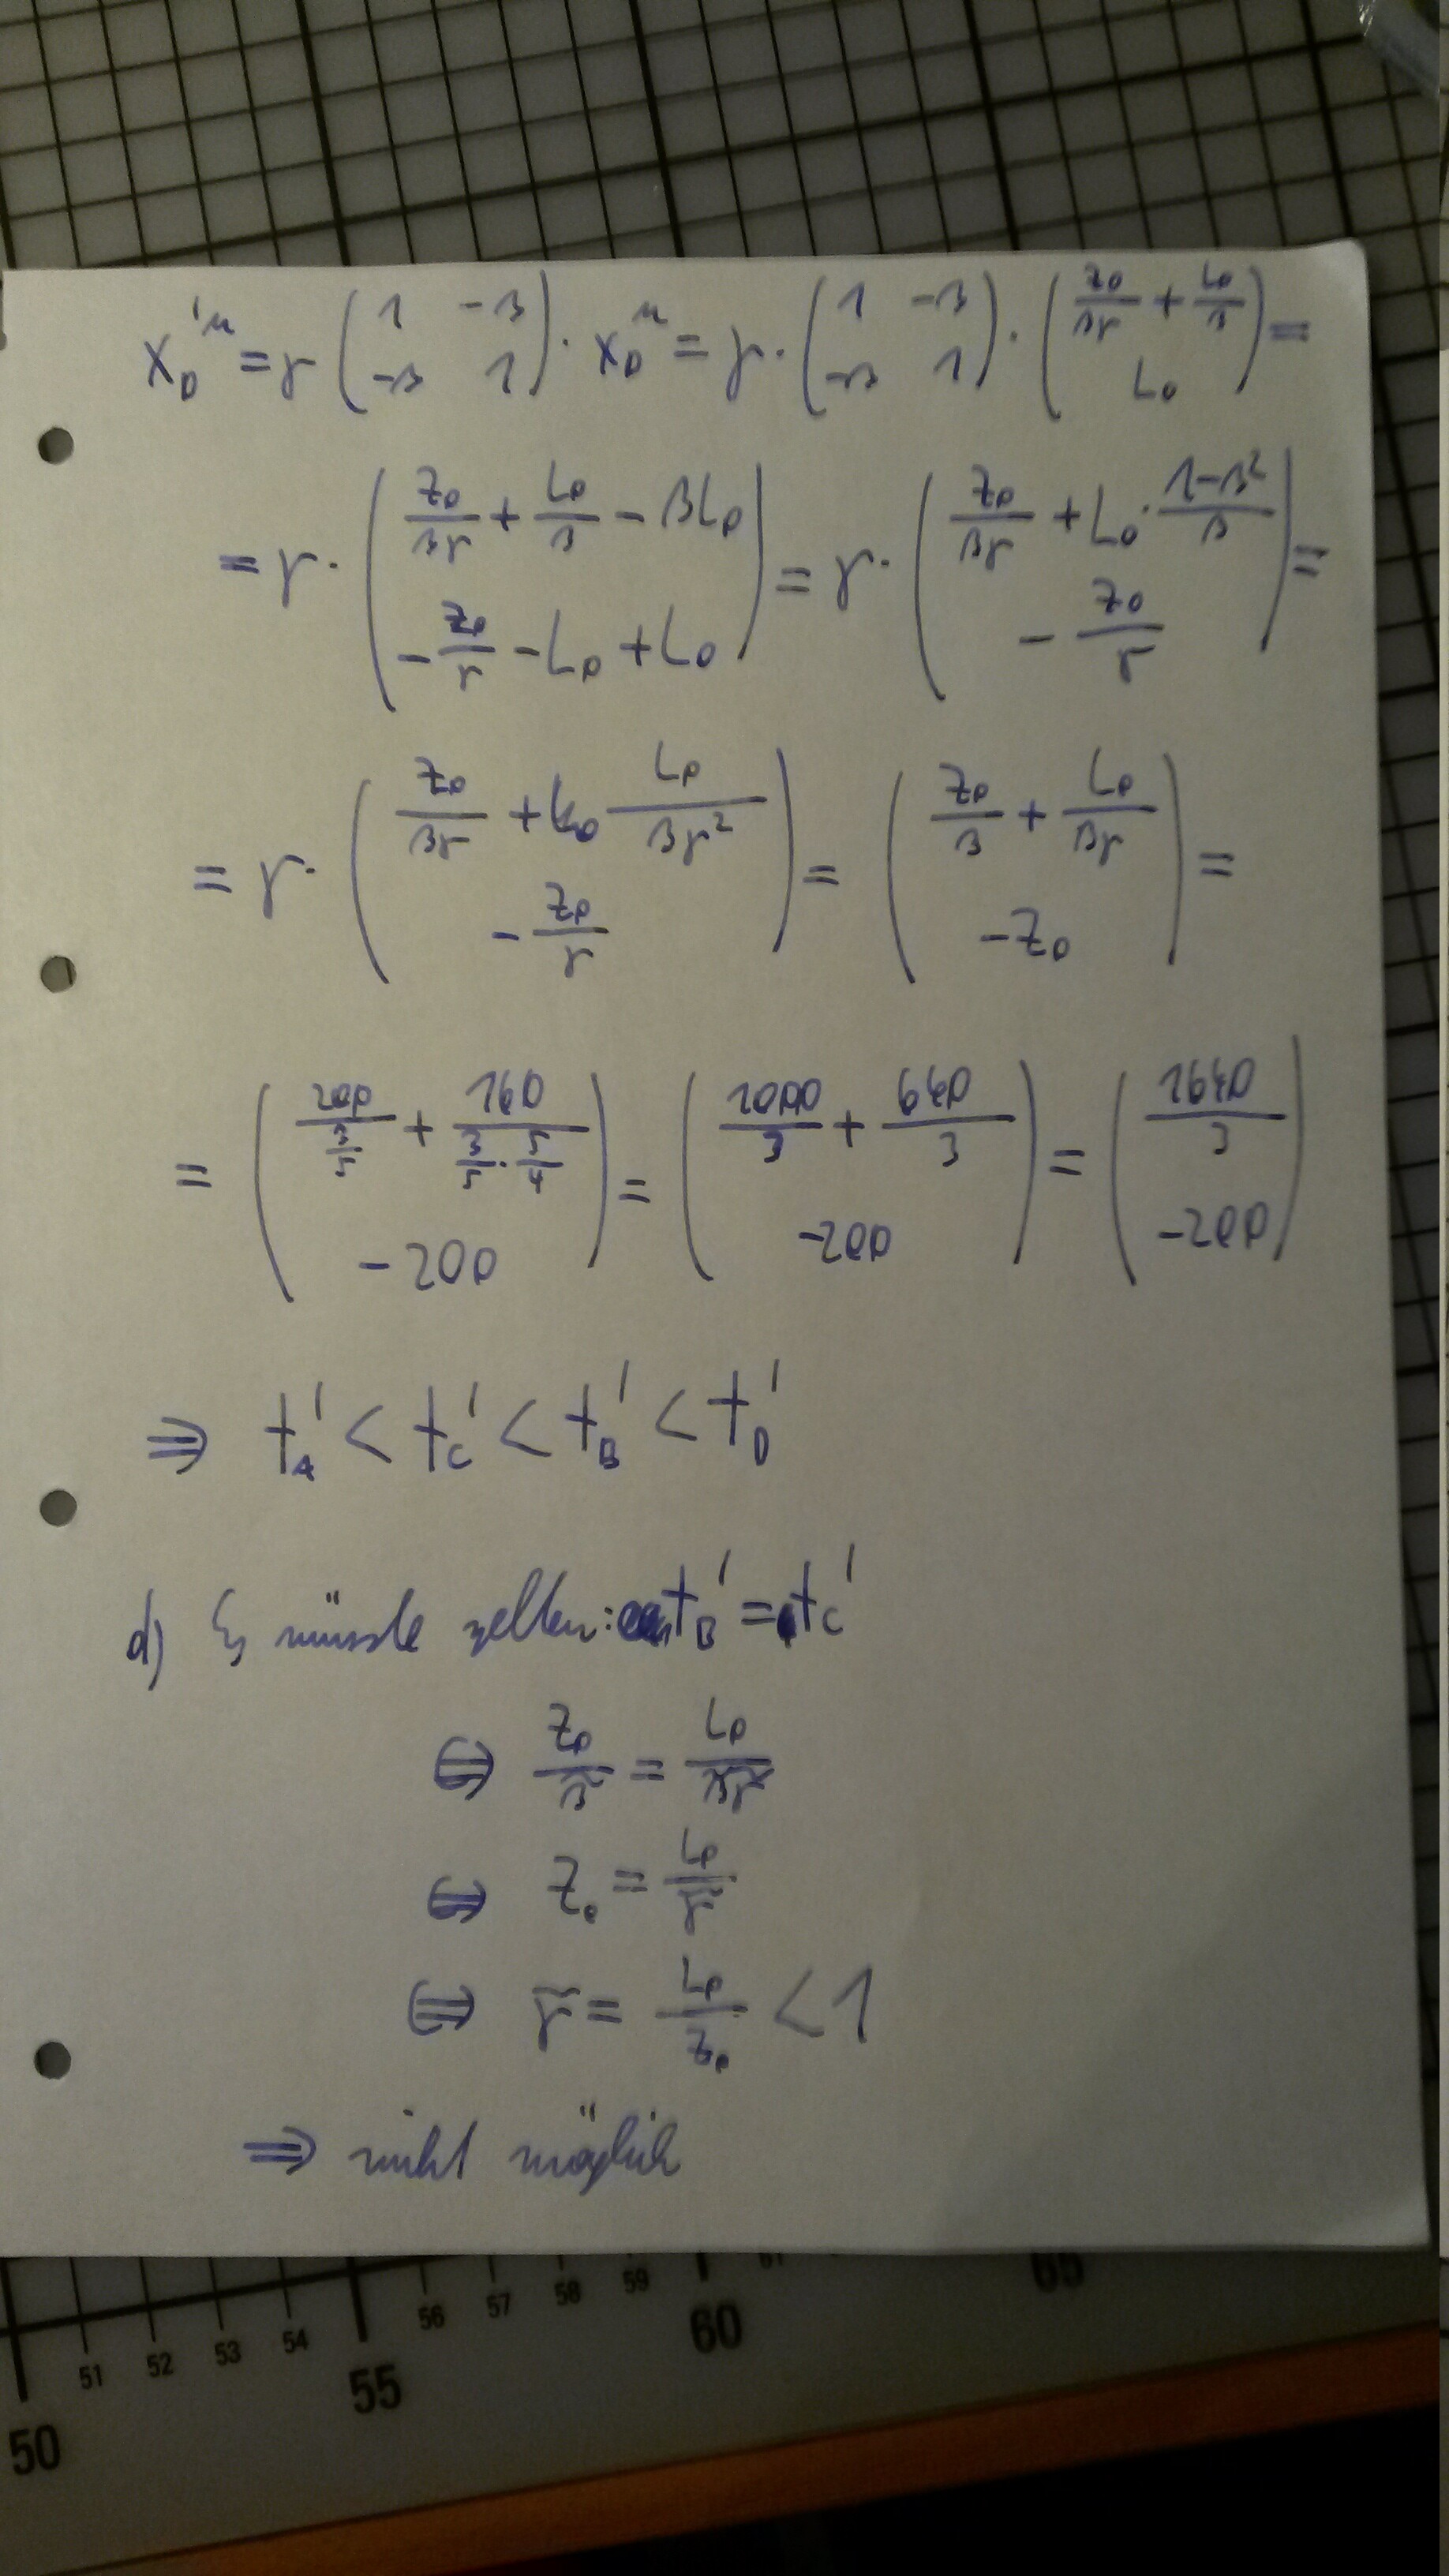 x_D'^μ = γ (1 -β; -β 1) · x_D^μ = γ · (1 -β; -β 1) · (Z₀/βγ + L₀/β; L₀) =
= γ · (Z₀/βγ + L₀/β - βL₀; -Z₀/γ - L₀ + L₀) = γ · (Z₀/βγ + L₀ · (1-β²)/β; -Z₀/γ) =
= γ · (Z₀/βγ + L₀/βγ²; -Z₀/γ) = (Z₀/β + L₀/βγ; -Z₀) =
= (200/(3/5) + 160/(3/5 · 5/4); -200) = (1000/3 + 640/3; -200) = (1640/3; -200)
⇒ t_A' < t_C' < t_B' < t_D'
d) Es müsste gelten: t_B' = t_C'
⇔ Z₀/β̃ = L₀/β̃γ̃
⇔ Z₀ = L₀/γ̃
⇔ γ̃ = L₀/Z₀ < 1
⇒ nicht möglich
50 51 52 53 54 55 56 57 58 59 60 61 65